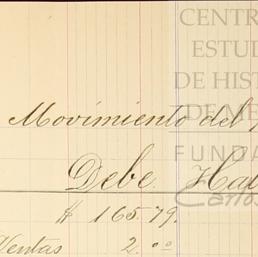 CENTR
ESTUD
DE HIST
DE MÉ
FUNDA
Carlos
Movimiento del
Debe Ha
$ 165.79.
Ventas 2.00